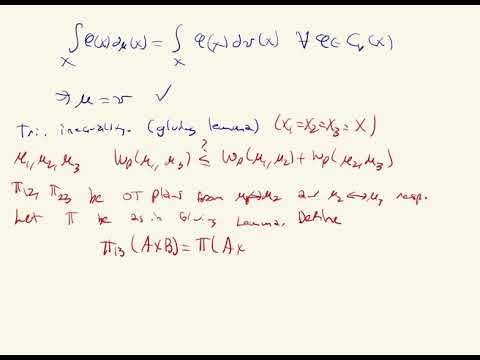 ∫_X φ(x)dμ(x) = ∫_X φ(x)dν(x) ∀ φ∈ C_b(X)
⇒ μ = ν ✓
Tri. inequality. (gluing lemma) (X₁=X₂=X₃=X)
μ₁, μ₂, μ₃ W_p(μ₁, μ₃) ≤? W_p(μ₁, μ₂) + W_p(μ₂, μ₃)
π₁₂, π₂₃ be OT plans from μ₁↔μ₂ and μ₂↔μ₃ resp.
Let π be as in Gluing Lemma. Define
π₁₃(A×B) = π(A×